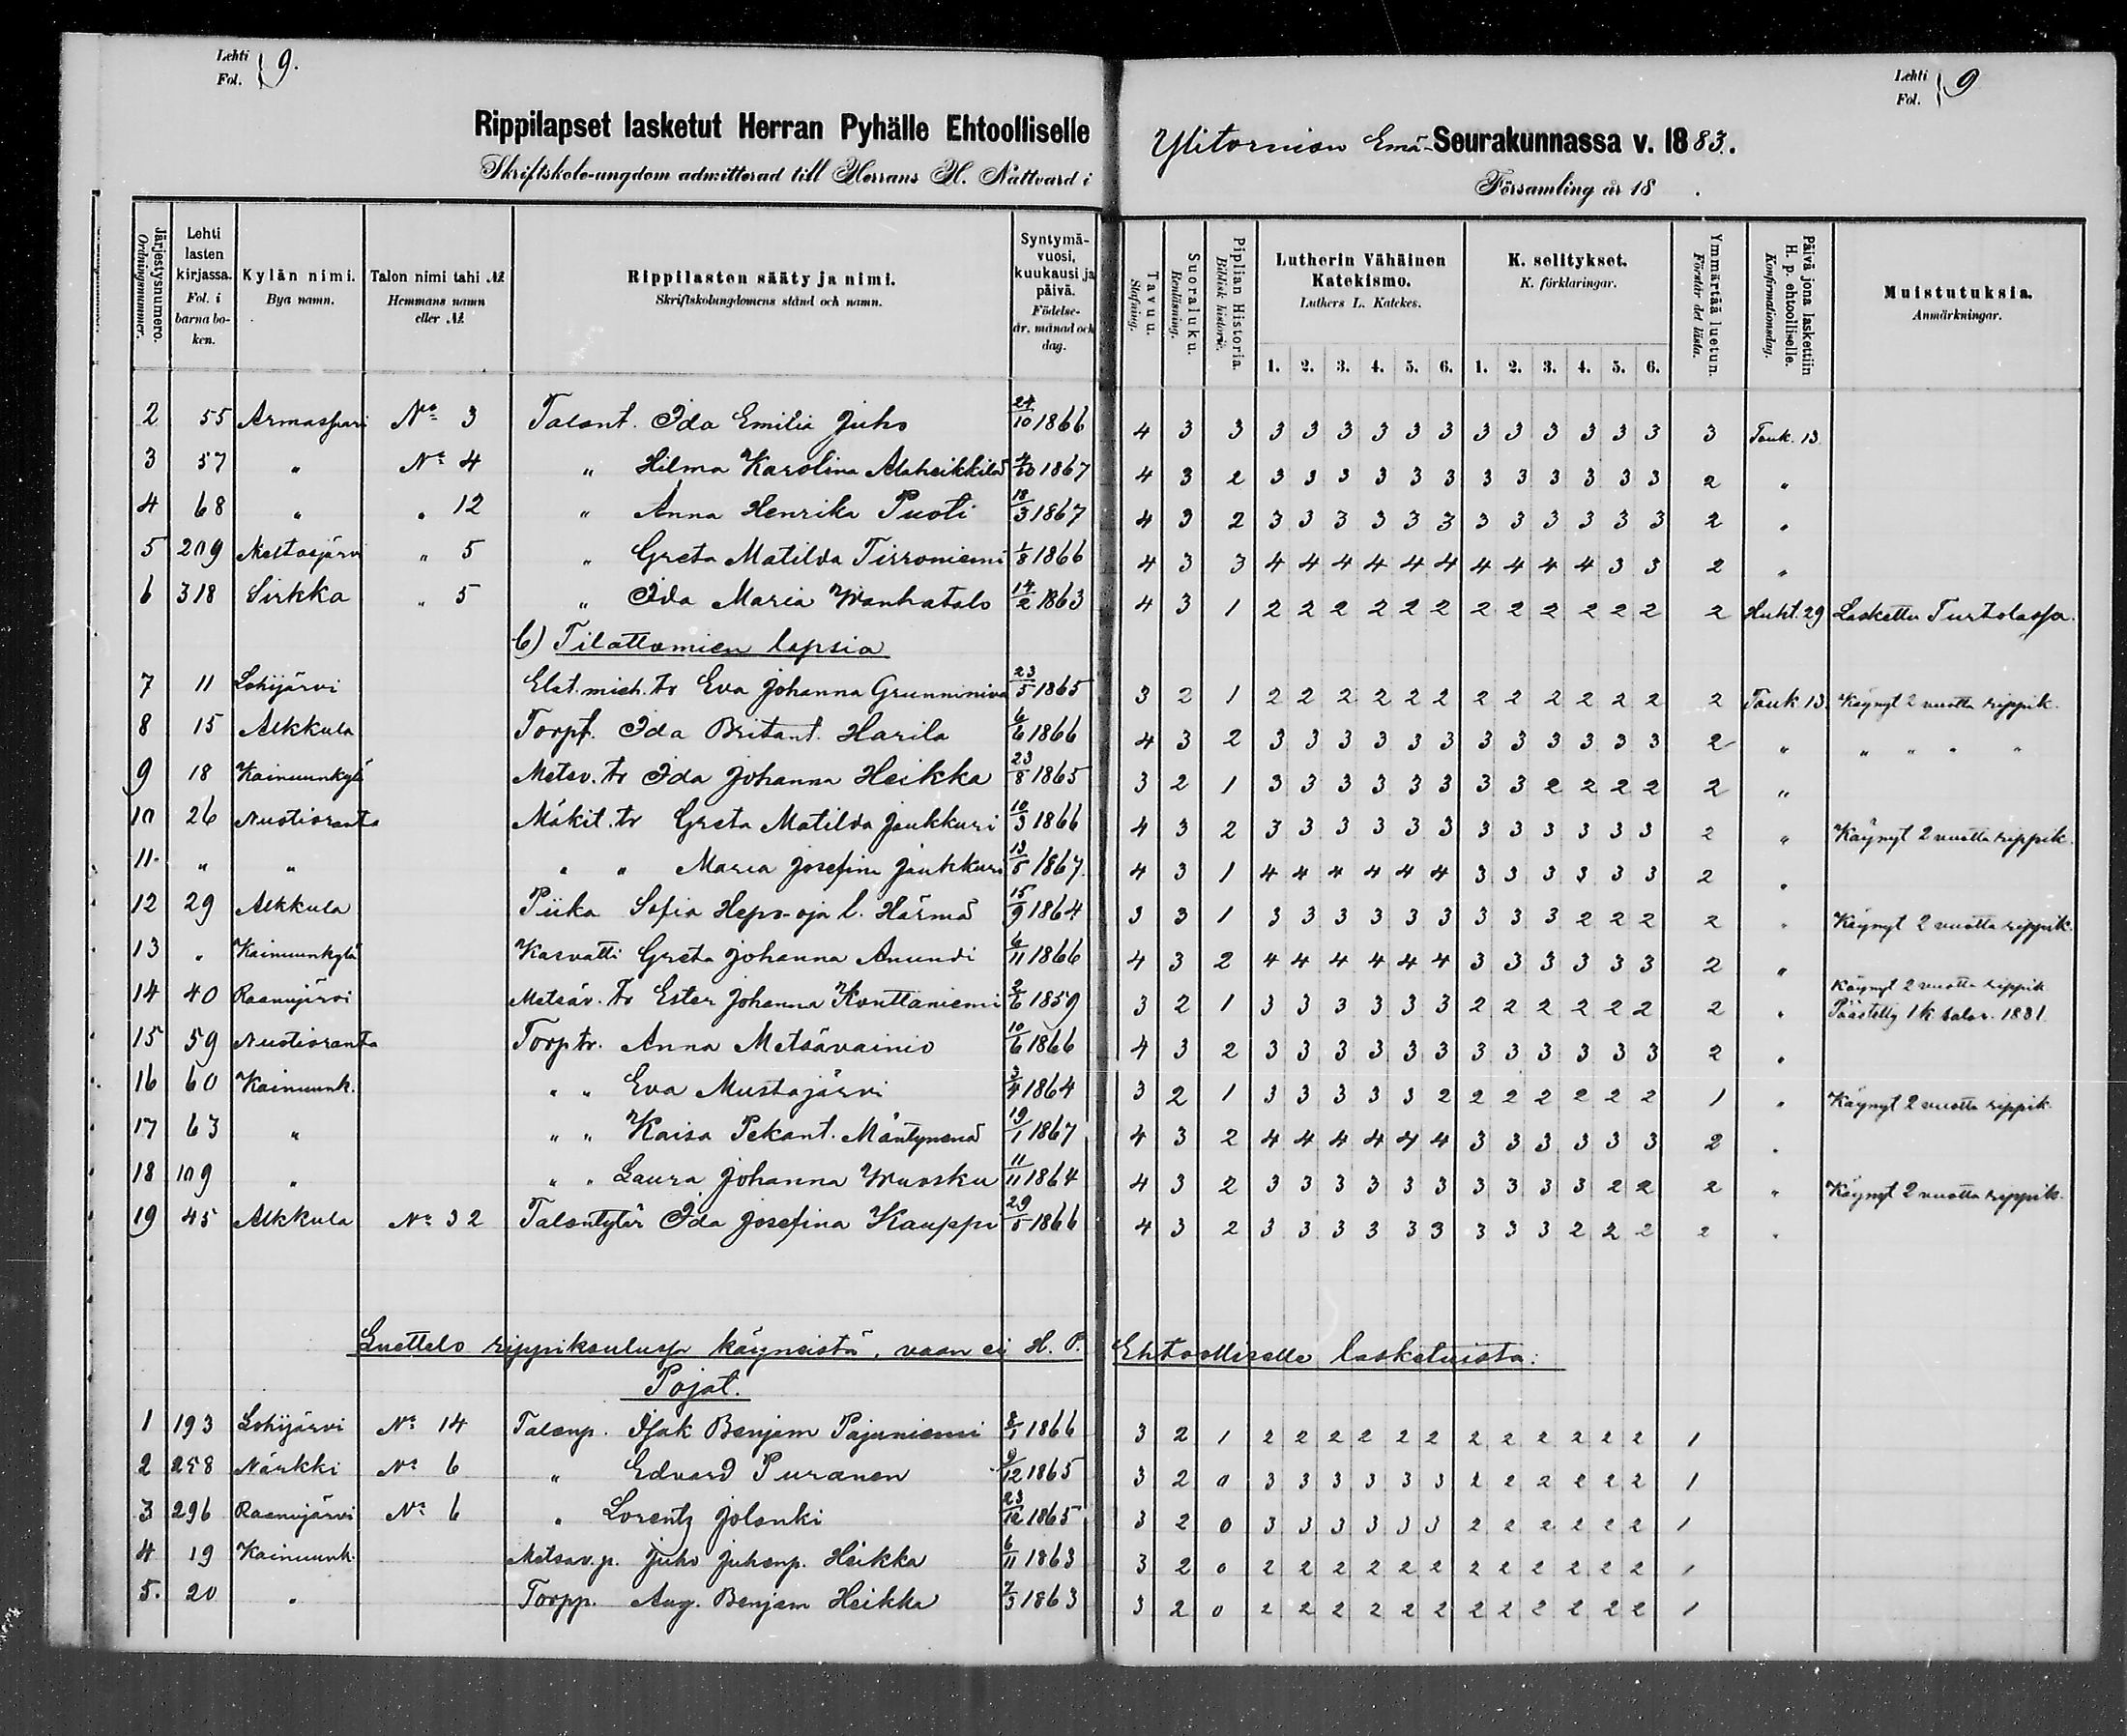 Lehti Fol. } 9.
Rippilapset lasketut Herran Pyhälle Ehtoolliselle
Skriftskole-ungdom admitterad till Herrans H. Nattvard i
Lehti Fol. } 9
Ylitornion Emä-Seurakunnassa v. 1883.
Församling år 18 .
Järjestysnumero. Ordningsnummer.
Lehti lasten kirjassa. Fol. i barna boken.
Kylän nimi. Bya namn.
Talon nimi tahi № Hemmans namn eller №
Rippilasten sääty ja nimi. Skriftskolungdomens stånd och namn.
Syntymävuosi, kuukausi ja päivä. Födelseår, månad och dag.
Tavuu. Stafning.
Suoraluku. Renläsning.
Piplian Historia. Biblisk historie.
Lutherin Vähäinen Katekismo. Luthers L. Katekes.
K. selitykset. K. förklaringar.
Ymmärtää luetun. Förstår det lästa.
Päivä jona laskettiin H. p. ehtoolliselle. Konfirmationsdag.
Muistutuksia. Anmärkningar.
1. 2. 3. 4. 5. 6. 1. 2. 3. 4. 5. 6.
2 55 Armassaari No 3 Talont. Ida Emilia Juho 24/10 1866 4 3 3 3 3 3 3 3 3 3 3 3 3 3 3 3 Touk. 13
3 57 " No 4 " Hilma Karolina Alaheikkilä 4/10 1867 4 3 2 3 3 3 3 3 3 3 3 3 3 3 3 2 "
4 68 " " 12 " Anna Henrika Puoti 18/3 1867 4 3 2 3 3 3 3 3 3 3 3 3 3 3 3 2 "
5 209 Meltosjärvi " 5 " Greta Matilda Tirroniemi 1/8 1866 4 3 3 4 4 4 4 4 4 4 4 4 4 3 3 2 "
6 318 Sirkka " 5 " Ida Maria Wanhatalo 14/2 1863 4 3 1 2 2 2 2 2 2 2 2 2 2 2 2 2 Huht. 29 Laskettu Turtolassa.
b) Tilattomien lapsia
7 11 Lohijärvi Elat. mieh. tr Eva Johanna Grunniniva 23/5 1865 3 2 1 2 2 2 2 2 2 2 2 2 2 2 2 2 Touk 13. Käynyt 2 vuotta rippik.
8 15 Alkkula Torpt. Ida Britant. Harila 6/6 1866 4 3 2 3 3 3 3 3 3 3 3 3 3 3 3 2 " " " " "
9 18 Kainuunkylä Metsv. tr Ida Johanna Heikka 23/8 1865 3 2 1 3 3 3 3 3 3 3 3 2 2 2 2 2 "
10 26 Nuotioranta Mäkit. tr Greta Matilda Jaukkuri 10/3 1866 4 3 2 3 3 3 3 3 3 3 3 3 3 3 3 2 " Käynyt 2 vuotta rippik.
11. " " " " Maria Josefina Jaukkuri 13/5 1867. 4 3 1 4 4 4 4 4 4 3 3 3 3 3 3 2 "
12 29 Alkkula Piika Sofia Hepo-oja l. Härmä 15/9 1864 3 3 1 3 3 3 3 3 3 3 3 3 2 2 2 2 " Käynyt 2 vuotta rippik.
13 " Kainuunkylä Kasvatti Greta Johanna Anundi 6/11 1866 4 3 2 4 4 4 4 4 4 3 3 3 3 3 3 2 "
14 40 Raanujärvi Metsäv. tr Ester Johanna Konttaniemi 2/6 1859 3 2 1 3 3 3 3 3 3 2 2 2 2 2 2 2 " Käynyt 2 vuotta rippik
Päästetty 1 k. salav. 1881.
15 59 Nuotioranta Torp. tr. Anna Metsävainio 10/6 1866 4 3 2 3 3 3 3 3 3 3 3 3 3 3 3 2 "
16 60 Kainuunk. " " Eva Mustajärvi 3/4 1864 3 2 1 3 3 3 3 3 2 2 2 2 2 2 2 1 " Käynyt 2 vuotta rippik.
17 63 " " " Kaisa Pekant. Mäntymenä 19/1 1867 4 3 2 4 4 4 4 4 4 3 3 3 3 3 3 2 "
18 109 " " " Laura Johanna Wuosku 11/11 1864 4 3 2 3 3 3 3 3 3 3 3 3 3 2 2 2 " Käynyt 2 vuotta rippik.
19 45 Alkkula No 32 Talontytär Ida Josefina Kauppi 29/5 1866 4 3 2 3 3 3 3 3 3 3 3 3 2 2 2 2 "
Luettelo rippikoulussa käyneistä, vaan ei H. P. Ehtoolliselle lasketuista:
Pojat.
1 193 Lohijärvi No 14 Talonp. Isak Benjam Pajuniemi 8/1 1866 3 2 1 2 2 2 2 2 2 2 2 2 2 2 2 1
2 258 Närkki No 6 " Edvard Puranen 9/12 1865 3 2 0 3 3 3 3 3 3 2 2 2 2 2 2 1
3 296 Raanujärvi No 6 " Lorentz Jolanki 23/12 1865 3 2 0 3 3 3 3 3 3 2 2 2 2 2 2 1
4 19 Kainuunk. Metsäv. p. Juho Juhonp. Heikka 6/11 1863 3 2 0 2 2 2 2 2 2 2 2 2 2 2 2 1
5. 20 " Torpp. Aug. Benjam Heikka 7/3 1863 3 2 0 2 2 2 2 2 2 2 2 2 2 2 2 1